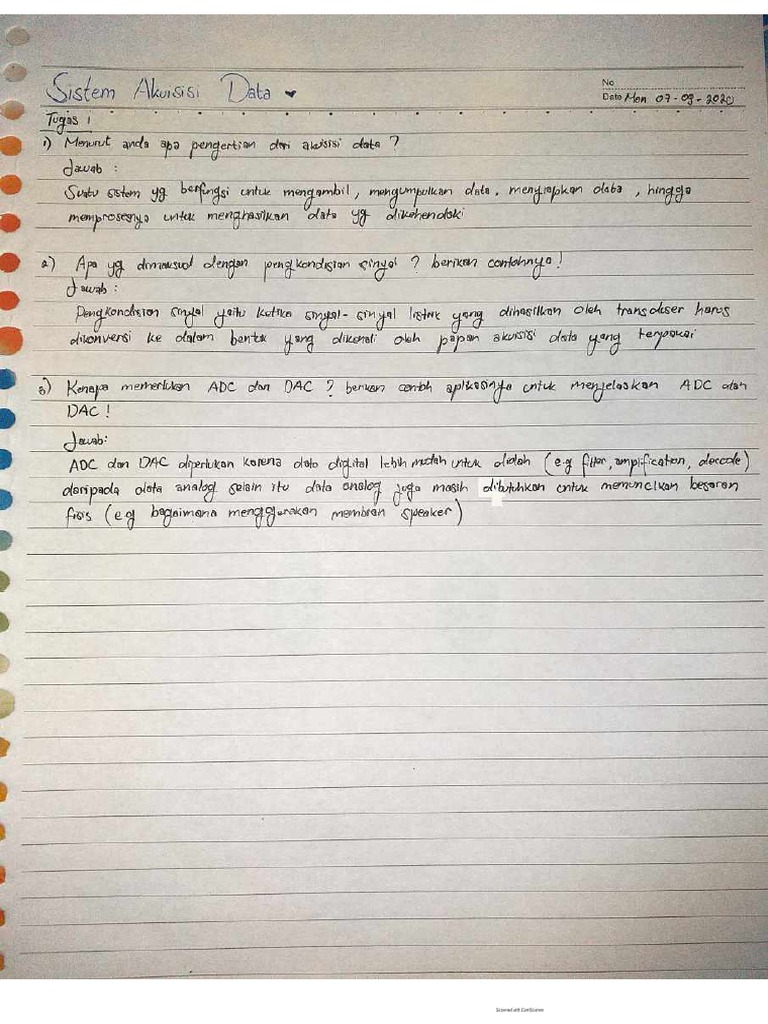 Sistem Akuisisi Data
No
Date Mon 07-09-2020
Tugas 1
1) Menurut anda apa pengertian dari akuisisi data ?
Jawab :
Suatu sistem yg berfungsi untuk mengambil, mengumpulkan data, menyiapkan data, hingga
memprosesnya untuk menghasilkan data yg dikehendaki
2) Apa yg dimaksud dengan pengkondisian sinyal ? berikan contohnya !
Jawab :
Pengkondisian sinyal yaitu ketika sinyal-sinyal listrik yang dihasilkan oleh transduser harus
dikonversi ke dalam bentuk yang dikenali oleh papan akuisisi data yang terpakai
3) Kenapa memerlukan ADC dan DAC ? berikan contoh aplikasinya untuk menjelaskan ADC dan
DAC !
Jawab:
ADC dan DAC diperlukan karena data digital lebih mudah untuk diolah (e.g filter, amplification, decode)
daripada data analog selain itu data analog juga masih dibutuhkan untuk memunclkan besaran
fisis (e.g bagaimana menggerakan membran speaker)
Scanned with CamScanner